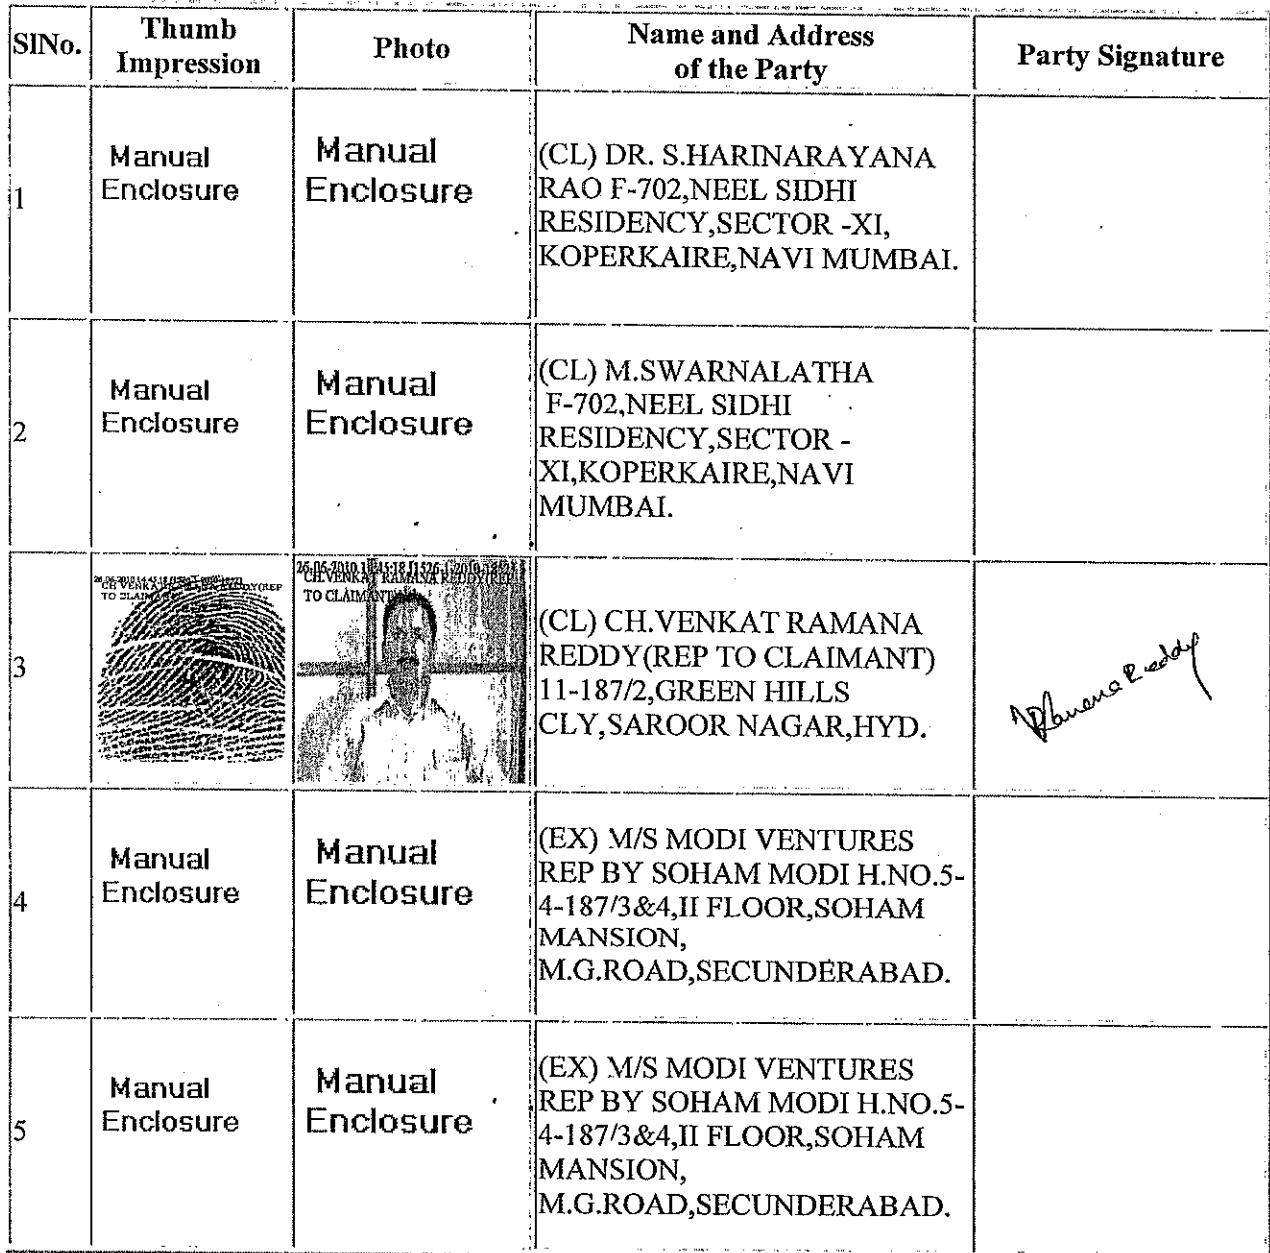 SlNo.
Thumb
Impression
Photo
Name and Address
of the Party
Party Signature
1
Manual
Enclosure
Manual
Enclosure
(CL) DR. S.HARINARAYANA
RAO F-702,NEEL SIDHI
RESIDENCY,SECTOR -XI,
KOPERKAIRE,NAVI MUMBAI.
2
Manual
Enclosure
Manual
Enclosure
(CL) M.SWARNALATHA
F-702,NEEL SIDHI
RESIDENCY,SECTOR -
XI,KOPERKAIRE,NAVI
MUMBAI.
3
CH VENKAT RAMANA REDDY(REP
TO CLAIMANT)
CH.VENKAT RAMANA REDDY(REP
TO CLAIMANT)
(CL) CH.VENKAT RAMANA
REDDY(REP TO CLAIMANT)
11-187/2,GREEN HILLS
CLY,SAROOR NAGAR,HYD.
Ramana Reddy
4
Manual
Enclosure
Manual
Enclosure
(EX) M/S MODI VENTURES
REP BY SOHAM MODI H.NO.5-
4-187/3&4,II FLOOR,SOHAM
MANSION,
M.G.ROAD,SECUNDERABAD.
5
Manual
Enclosure
Manual
Enclosure
(EX) M/S MODI VENTURES
REP BY SOHAM MODI H.NO.5-
4-187/3&4,II FLOOR,SOHAM
MANSION,
M.G.ROAD,SECUNDERABAD.